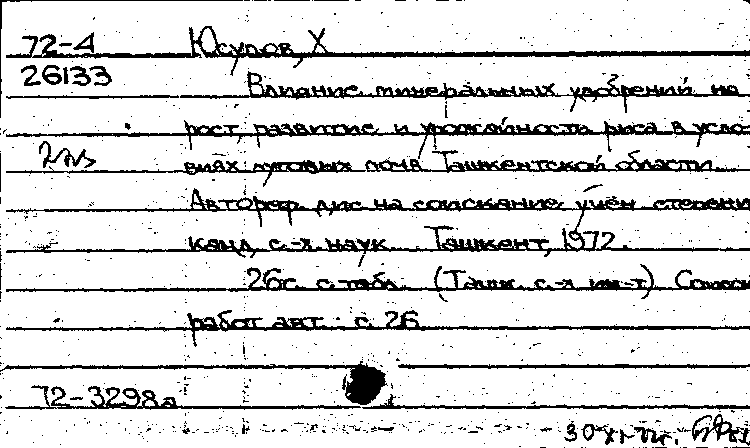 72-4 Юсупов, Х
26133 Влияние минеральных удобрений на
рост, развитие и урожайность риса в усло
виях луговых почв Ташкентской области.
Автореф. дис на соискание учён степени
канд. с.-х наук. Ташкент, 1972.
26с. с табл. (Ташк. с-х ин-т) Список
работ авт.: с. 26
72-3298а
30 XI